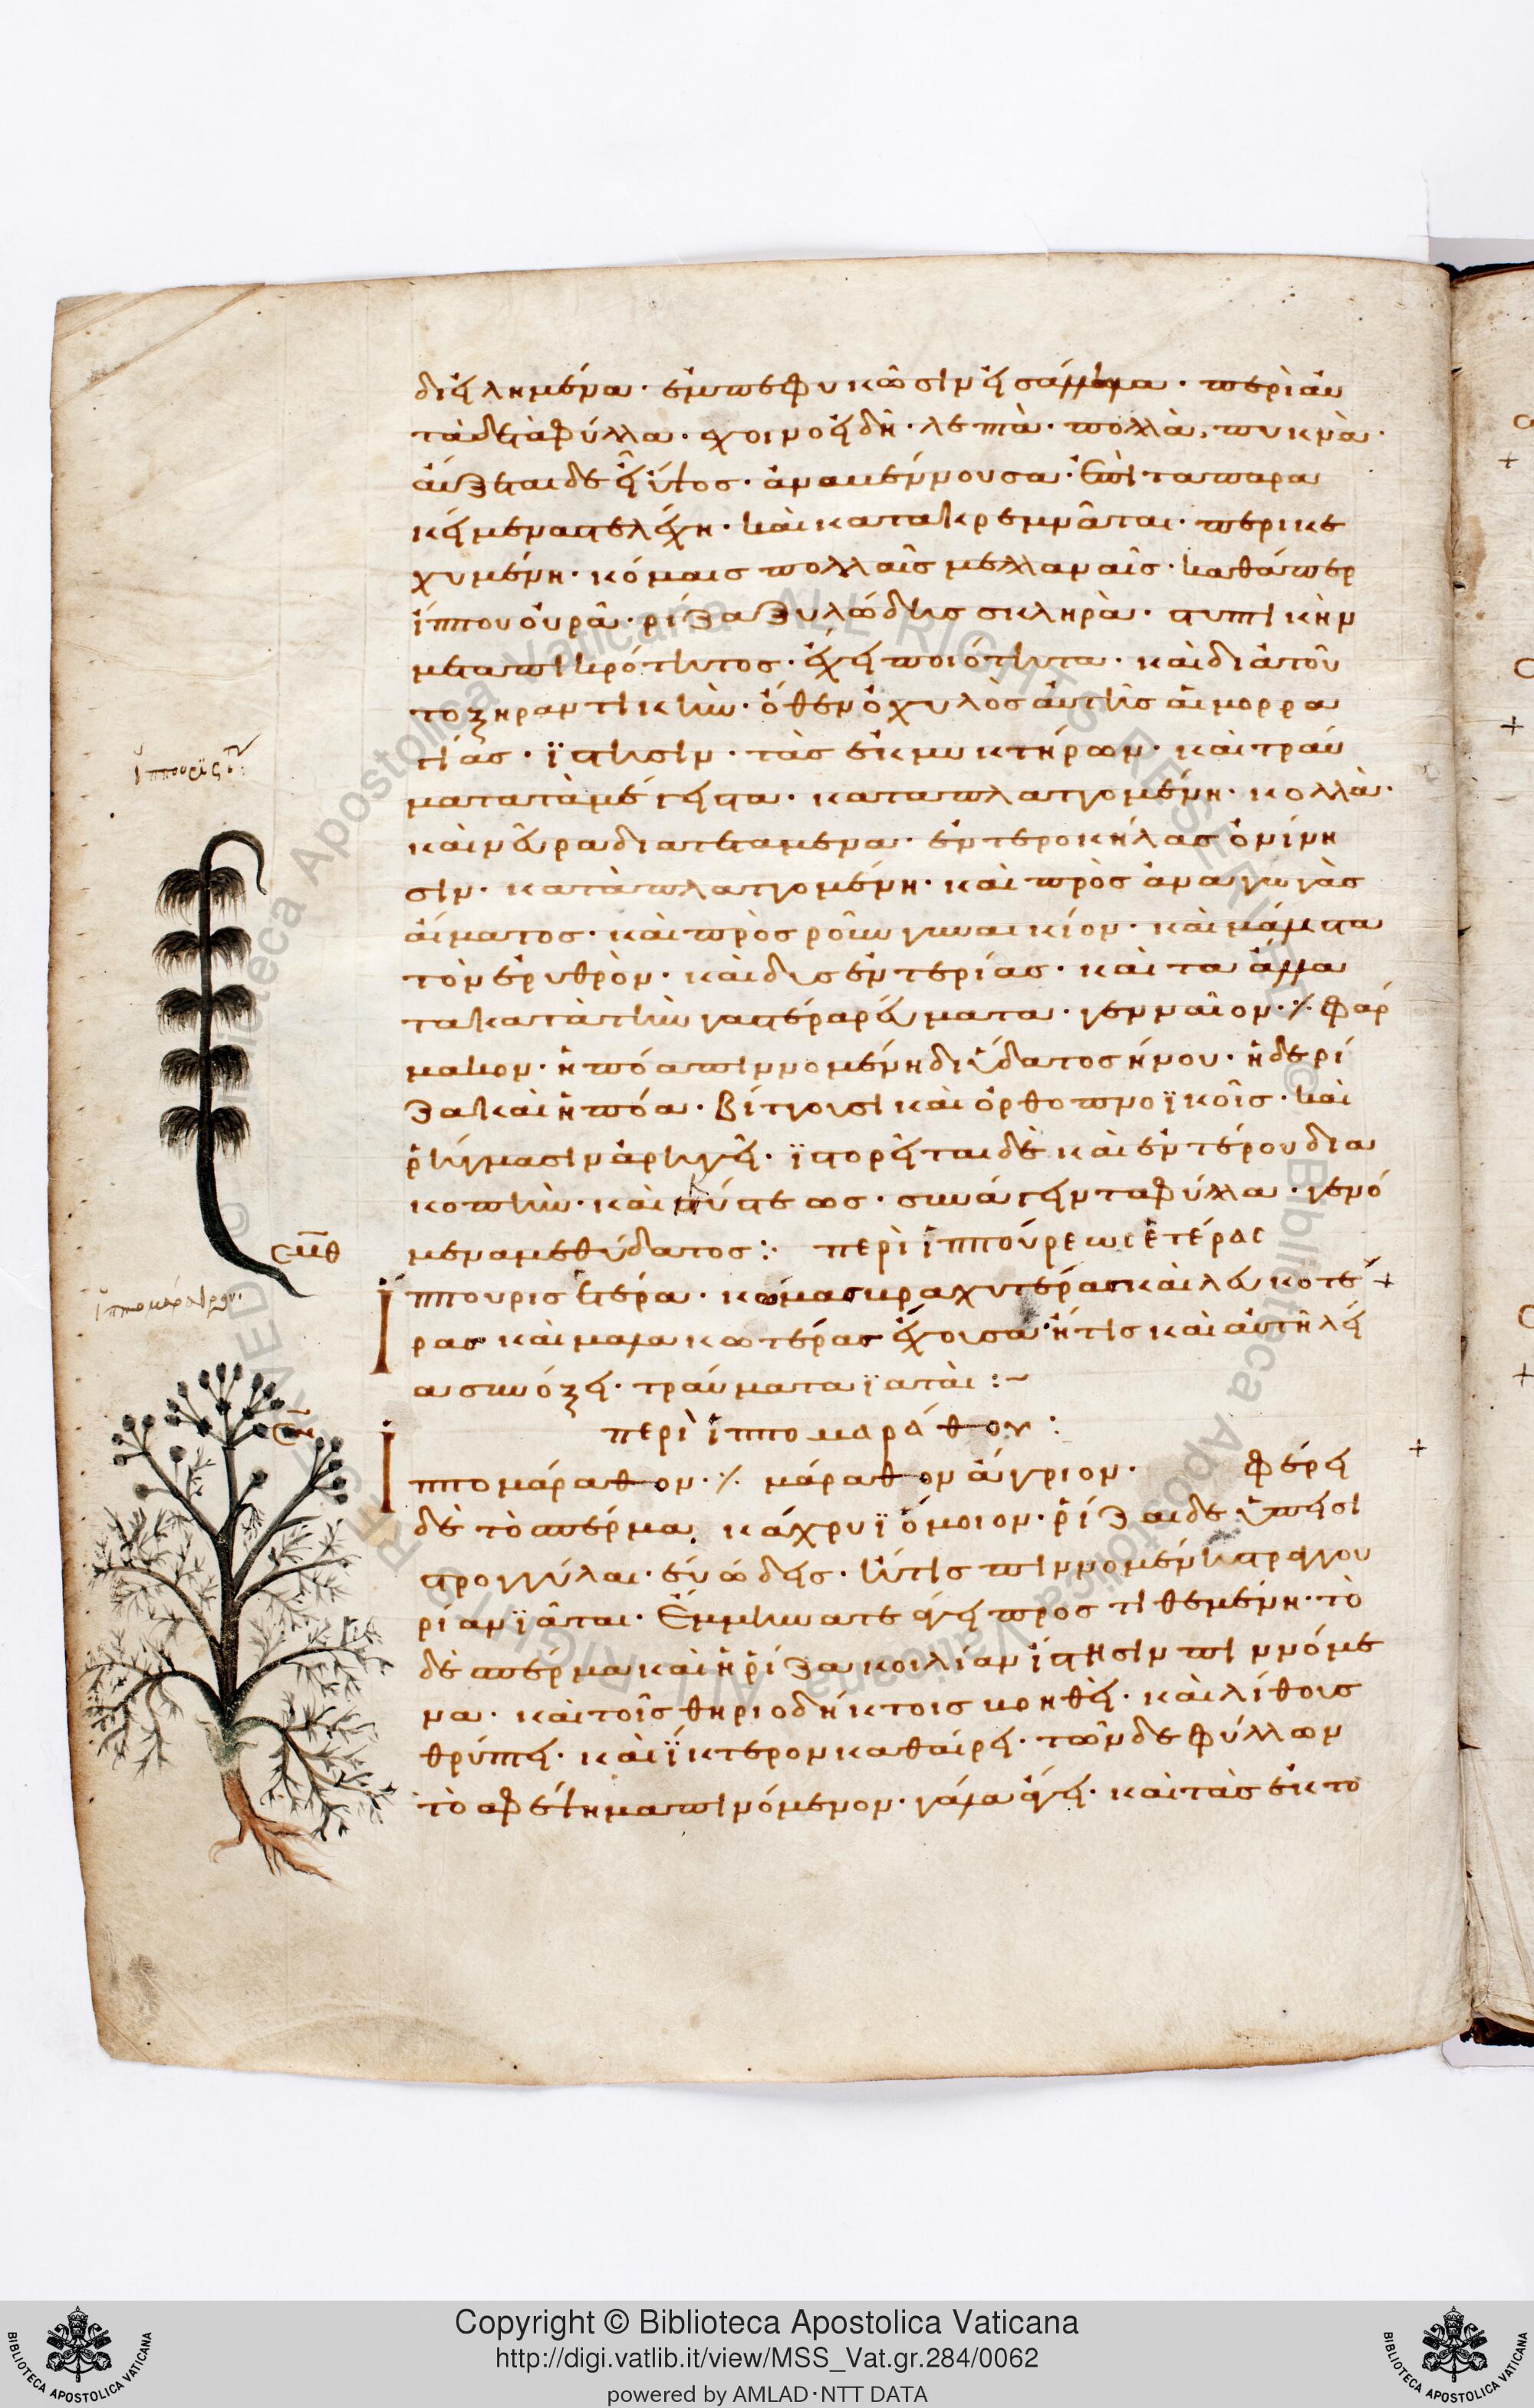 διειλημμένα · ἐμπεφυκῶσιν εἰς ἄλληλα · περὶ αυ
τὰ δε τὰ φύλλα · σχοινοειδῆ · λεπτὰ · πολλὰ, πυκνὰ ·
ἄυξεται δε εἰς ὕψος · ἀναμαίνουσα · ἐπὶ τα παρα
κείμενα στελέχη · καὶ κατακρεμνᾶται · περικε
χυμένη · κόμαις πολλαῖς μελλαναῖς · καθάπερ
ἵππου ὀυρᾶ · ρίζα ξυλώδης σκληρὰ · στυπτικὴν
μετα πικρότητος · ἔχει ποιότητα · καὶ διὰ τοῦ
το ξηραντικὴν · ὅθεν ὁ χυλὸς ἀυτῆς ἁιμορρα
γίας · ἵστησιν · τὰς ἐκ μυκτήρων · καὶ τραύ
ματα τὰ μέγιστα · καταπλασσομένη · κολλὰ ·
καὶ νεύρα διατεταμενα · ἐντεροκήλας ὀνίνη
σιν · κατὰπλασσομένη · καὶ πρὸς ἀναγωγὰς
ἅιματος · καὶ πρὸς ροῦν γυναικίον · καὶ μάλιστα
τὸν ἐρυθρὸν · καὶ δυσεντερίας · καὶ τα ἄλλα
τα κατὰ τὴν γαστέρα ρεύματα · γενναῖον ·٪ φάρ
μακον · ἡ πόα πιννομένη δι ὕδατος ἠ οίνου · ἡ δε ρί
ζα καὶ ἡ πόα · βίττουσι καὶ ὀρθοπνοϊκοῖς · καὶ
ῥήγμασιν ἀρήγει · ϊστορεῖται δὲ καὶ ἐντέρου δια
κοπὴν · καὶ κύστεως · συνάγειν τα φύλλα · πινό
μενα μεθ ὕδατος :· περὶ ἱππούρεως ἑτέρας
Ἵππουρις ἑτέρα · κόμας βραχυτέρας καὶ λευκοτέ
ρας καὶ μαλακωτέρας ἔχουσα · ἥτις καὶ ἀυτὴ λεῖ
α συν ὄξει · τραύματα ϊαται :~
περὶ ἱππομαράθου :
Ἱππομάραθον ·٪ μάραθον ἄγριον · φέρει
δὲ τὸ σπέρμα, κάχρυϊ ὅμοιον · ῥίζαι δε ὕπεισι
στρογγύλαι · ἐυώδεις · ἥτις πιννομένη στραγγου
ριαν ϊᾶται · Ἔμμηνα τε άγει προς τιθεμένη · τὸ
δὲ σπέρμα καὶ ἡ ῥίζα κοιλιαν ίστησιν πιννόμε
να · καὶ τοῖς θηριοδήκτοις βοηθεῖ · καὶ λίθους
θρύπτει · καὶ ϊκτερον καθαίρει · τῶν δε φύλλων
τὸ αφέψημα πινόμενον · γάλα άγει · καὶ τὰς ἐκ το
σμθ
σν
Copyright © Biblioteca Apostolica Vaticana
http://digi.vatlib.it/view/MSS_Vat.gr.284/0062
powered by AMLAD·NTT DATA
BIBLIOTECA APOSTOLICA VATICANA
BIBLIOTECA APOSTOLICA VATICANA